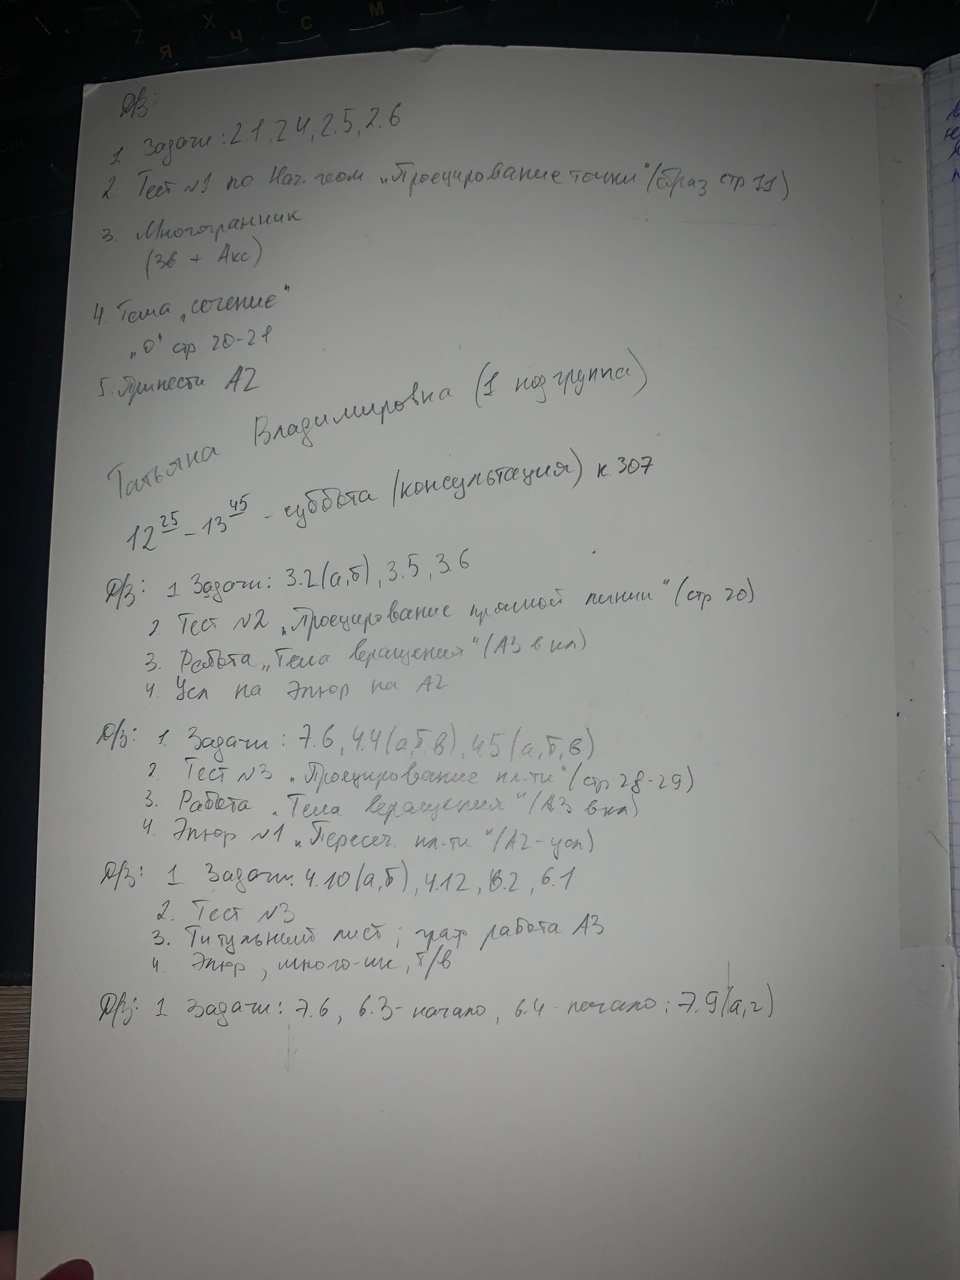 Д/з:
1 Задачи: 2.1, 2.4, 2.5, 2.6
2 Тест №1 по Нач. геом „Проецирование точки" (образ стр 11)
3. Многогранник
(3в + Акс)
4. Тема „сечение"
„0" стр 20-21
5. Принести А2
Татьяна Владимировна (1 подгруппа)
12 25 - 13 45 - суббота (консультация) к 307
Д/з: 1 Задачи: 3.2(а,б), 3.5, 3.6
2. Тест №2 „Проецирование прямой линии" (стр 20)
3. Работа „Тела вращения" (А3 в кл)
4. Усл на Эпюр на А2
Д/з: 1. Задачи: 7.6, 4.4(а,б,в), 4.5 (а,б,в)
2. Тест №3 „Проецирование пл-ти" (стр 28-29)
3. Работа „Тела вращения" (А3 в кл)
4. Эпюр №1 „Пересеч. пл-ти" (А2-усл)
Д/з: 1 Задачи: 4.10(а,б), 4.12, 6.1
2. Тест №3
3. Титульный лист; граф работа А3
4. Эпюр, много-ик, т/в
Д/з: 1 Задачи: 7.6, 6.3-начало, 6.4-начало; 7.9(а,г)
Z
X
C
Я
Ч
С
М